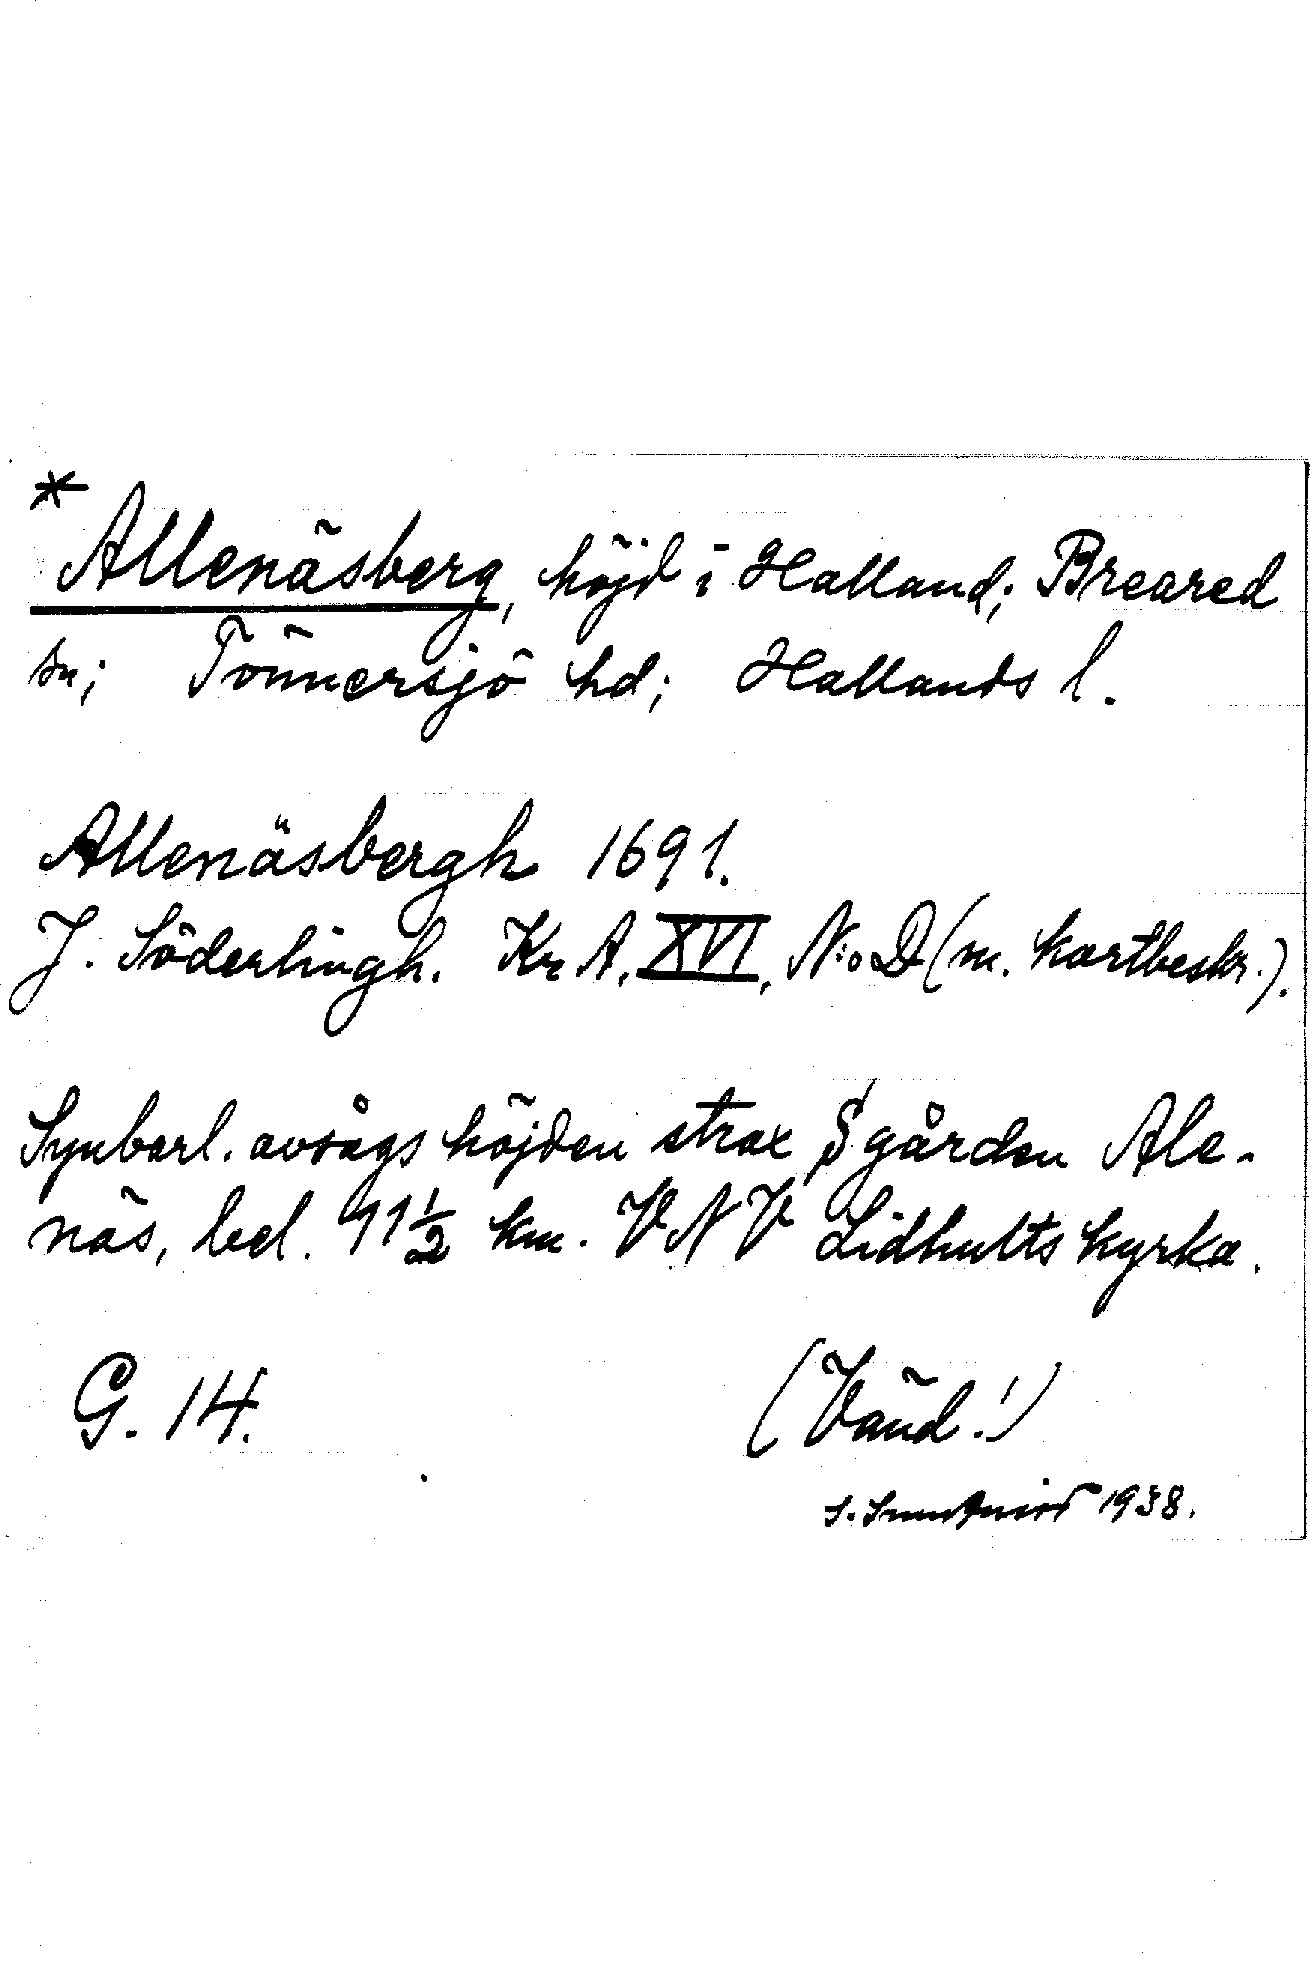 *
Allenäsberg, höjd i Halland; Breared
sn; Tönnersjö hd; Hallands l.
Allenäsbergh 1691.
J. Söderlingh. Kr A. XVI, N:o D (m. kartbeskr.).
Synbarl. avsågs höjden strax S gården Ale-
näs, bel. 11½ km. VNV Lidhults kyrka.
G. 14.
(Vänd!)
S. 1938.